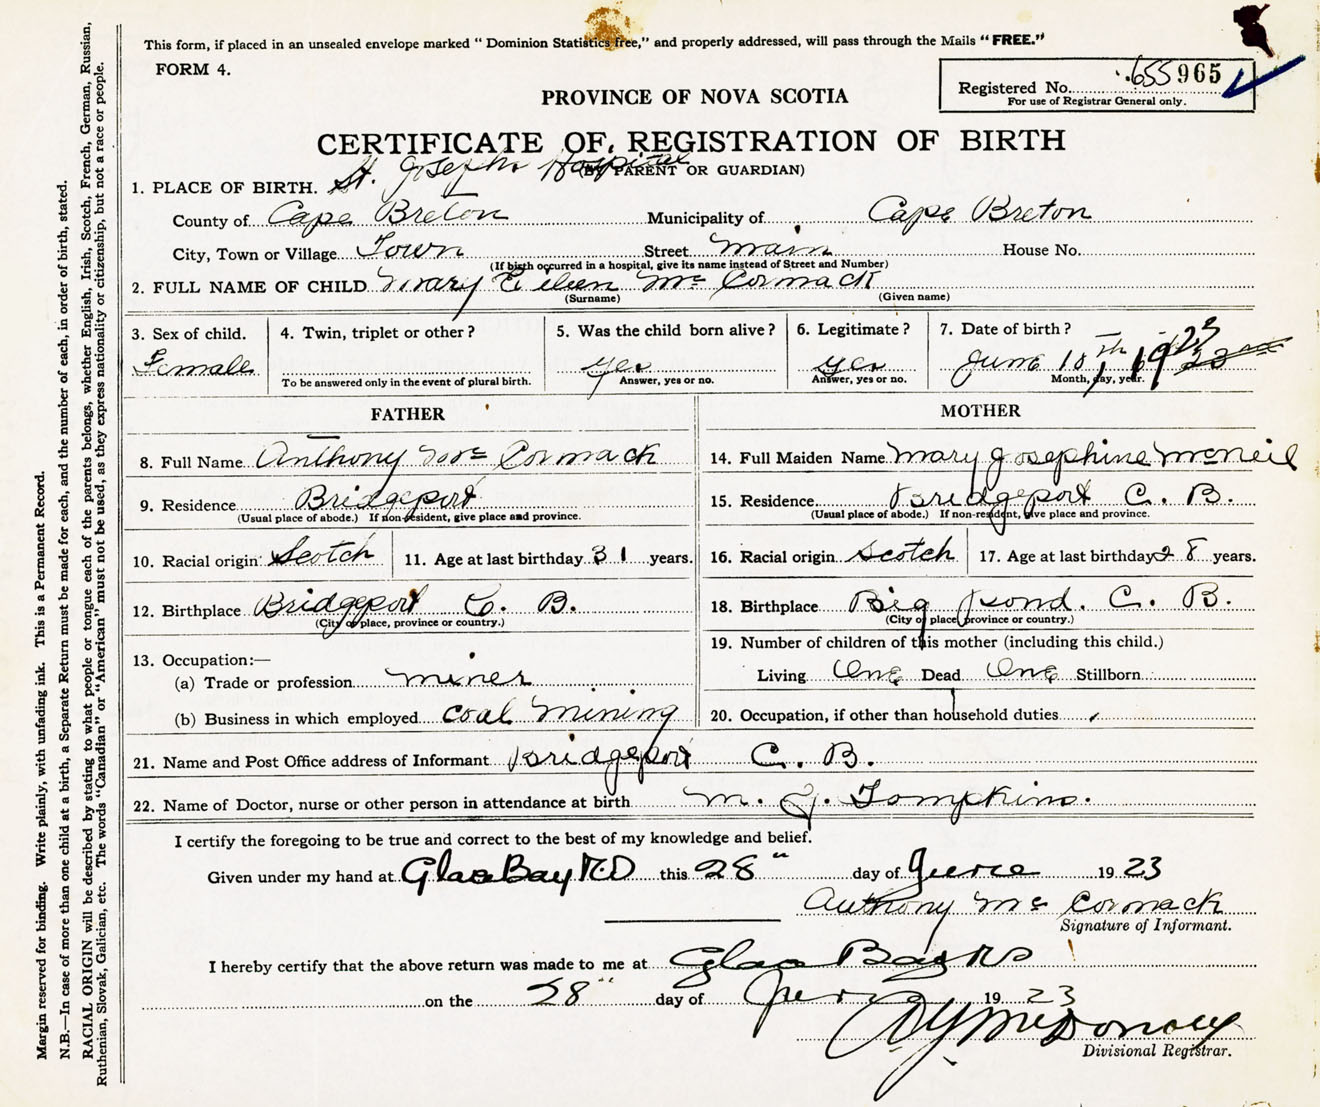 This form, if placed in an unsealed envelope marked “ Dominion Statistics free,” and properly addressed, will pass through the Mails “FREE.”
FORM 4.
Registered No. 655965
For use of Registrar General only.
PROVINCE OF NOVA SCOTIA
CERTIFICATE OF REGISTRATION OF BIRTH
(BY PARENT OR GUARDIAN)
1. PLACE OF BIRTH. St. Joseph Hospital
County of Cape Breton Municipality of Cape Breton
City, Town or Village Town Street Main House No.
(If birth occurred in a hospital, give its name instead of Street and Number)
2. FULL NAME OF CHILD Mary Eileen Mc Cormack
(Surname) (Given name)
3. Sex of child. 4. Twin, triplet or other? 5. Was the child born alive? 6. Legitimate? 7. Date of birth?
Female yes yes June 18th 1923
To be answered only in the event of plural birth. Answer, yes or no. Answer, yes or no. Month, day, year.
FATHER MOTHER
8. Full Name Anthony Mc Cormack 14. Full Maiden Name Mary Josephine McNeil
9. Residence Bridgeport 15. Residence Bridgeport C. B.
(Usual place of abode.) If non-resident, give place and province. (Usual place of abode.) If non-resident, give place and province.
10. Racial origin Scotch 11. Age at last birthday 31 years. 16. Racial origin Scotch 17. Age at last birthday 28 years.
12. Birthplace Bridgeport C. B. 18. Birthplace Big Pond. C. B.
(City or place, province or country.) (City or place, province or country.)
13. Occupation:— 19. Number of children of this mother (including this child.)
(a) Trade or profession miner Living One Dead One Stillborn
(b) Business in which employed coal mining 20. Occupation, if other than household duties
21. Name and Post Office address of Informant Bridgeport C. B.
22. Name of Doctor, nurse or other person in attendance at birth M. J. Tompkins.
I certify the foregoing to be true and correct to the best of my knowledge and belief.
Given under my hand at Glace Bay this 28" day of June 1923
Anthony Mc Cormack
Signature of Informant.
I hereby certify that the above return was made to me at Glace Bay
on the 28" day of June 1923
Divisional Registrar.
Margin reserved for binding. Write plainly, with unfading ink. This is a Permanent Record.
N.B.—In case of more than one child at a birth, a Separate Return must be made for each, and the number of each, in order of birth, stated.
RACIAL ORIGIN will be described by stating to what people or tongue each of the parents belongs, whether English, Irish, Scotch, French, German, Russian,
Ruthenian, Slovak, Galician, etc. The words “Canadian” or “American” must not be used, as they express nationality or citizenship, but not a race or people.